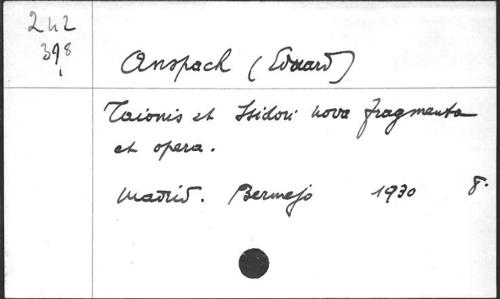 242
398
1
Anspach (Eduard)
Taionis et Isidori nova fragmenta
et opera.
Madrid. Bermejo 1930 8.